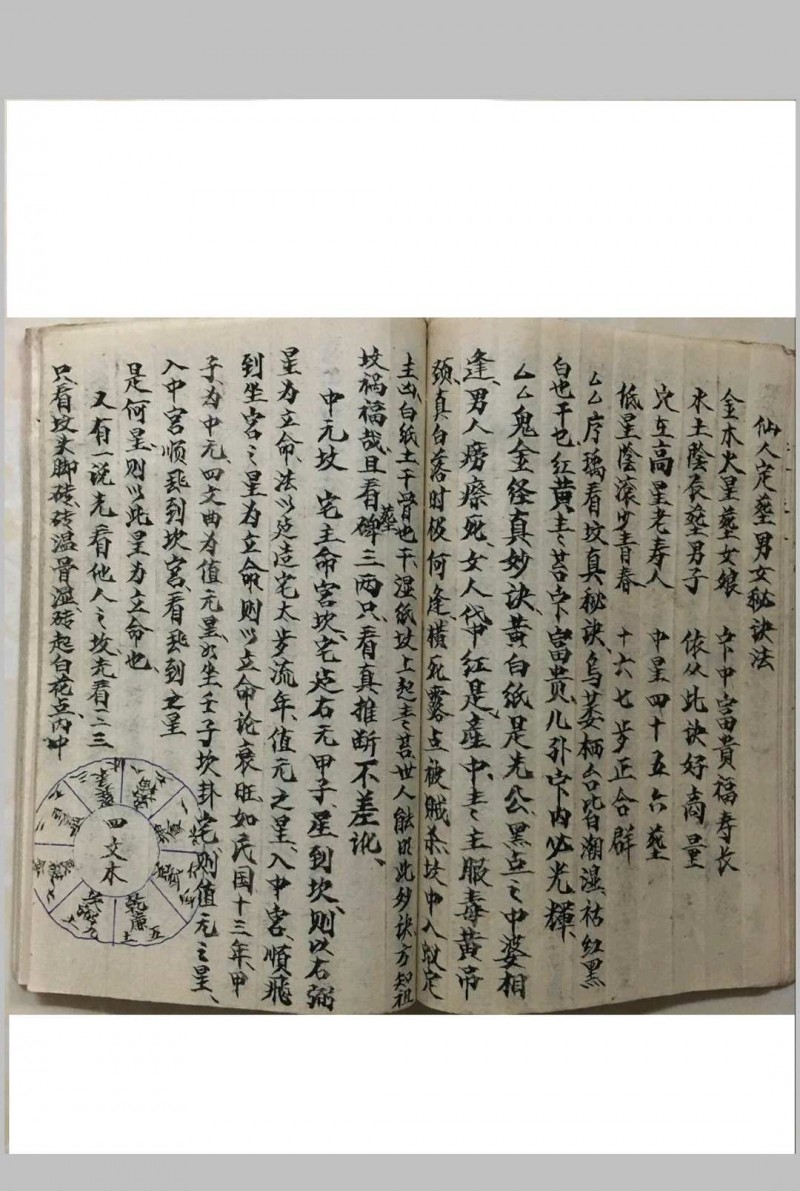 仙人定塟男女秘訣法
金木火星塟女娘　穴中富貴福寿长
水土陰辰塟男子　依从此诀好高量
穴在高星老寿人　中星四十五六塟
抵星陰滚少青春　十六七岁正合群
厶厶序璃看坟真秘诀、乌萎栖台皆潮湿、祜红黑
白也干也、红黄圭之苔穴富贵、儿孙穴内必光輝、
厶厶鬼金经真妙诀、黄白纸是先公、黑点之中婆相
逢、男人痨瘵死、女人袋红是產中、圭之主服毒黄吊
颈、真白落时极何逢、横死露点被贼杀、坟中入蚁定
主凶、白纸土干骨也干、湿纸坟上起圭之苔、世人能以此妙诀、方知祖塟
坟祸福哉、且看碑三两只、看真推断不差讹、
中元坟　宅主命宫坎、宅是右元甲子、星到坎、则以右弼
星为立命、法以是造宅太岁流年、值元之星、入中宫、順飛
到坐宫之星为立命、则以立命论衰旺、如民国十三年、甲
子、为中元、四文曲为值元星、如坐壬子坎卦宅、则值元之星、
入中宫順飛到坎宫、看飛到之星
是何星、则以此星为立命也、
又有一说先看他人之坟、先看二三
只看坟头脚砖、砖温骨湿、砖起白花点、内中
四文木
乾
廉
五
土